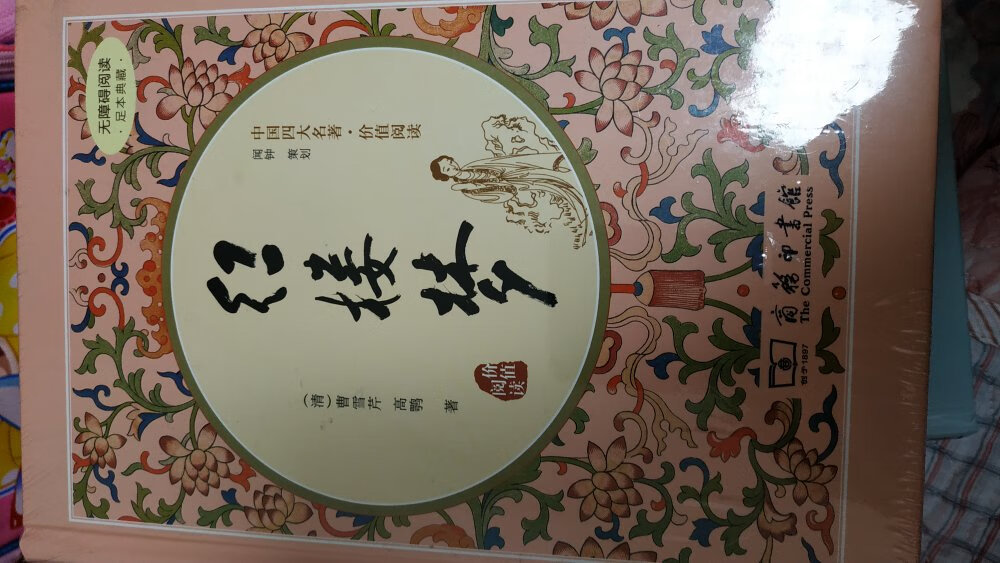 无障碍阅读
·足本典藏·
中国四大名著·价值阅读
闻钟 策划
红楼梦
价值
阅读
(清)曹雪芹 高鹗 著
创于1897
商务印书馆
The Commercial Press